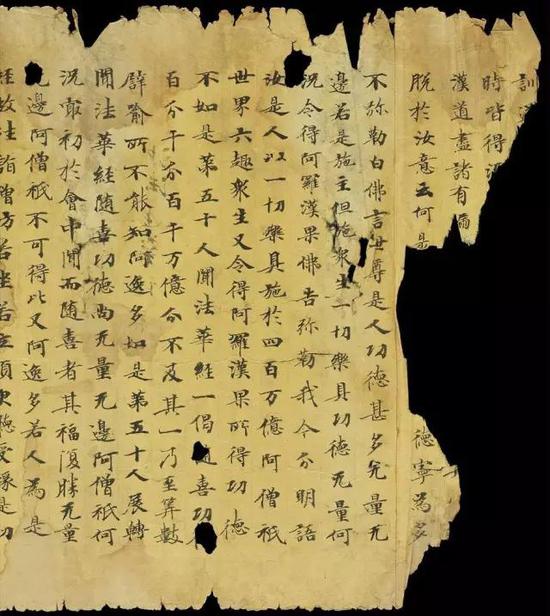 訓
時皆得
漢道盡諸有漏
脫於汝意云何是 德寧為多
不弥勒白佛言世尊是人功德甚多无量无
邊若是施主但施衆生一切樂具功德无量何
況令得阿羅漢果佛告弥勒我今分明語
汝是人以一切樂具施於四百万億阿僧祇
世界六趣衆生又令得阿羅漢果所得功德
不如是第五十人聞法華經一偈随喜功
百分千分百千万億分不及其一乃至算數
譬喻所不能知阿逸多如是第五十人展轉
聞法華經随喜功德尚无量无邊阿僧祇何
況最初於會中聞而随喜者其福復勝无量
邊阿僧祇不可得比又阿逸多若人為是
經故往詣僧坊若坐若立須臾聽受縁是功